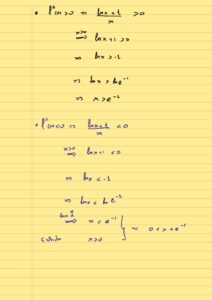 • f'(x)>0 ⇒ (lnx+1)/x >0
x>0 ⟹ lnx+1>0
⇒ lnx>-1
⇒ lnx > ln e⁻¹
⇒ x>e⁻¹
• f'(x)<0 ⇒ (lnx+1)/x <0
x>0 ⟹ lnx+1<0
⇒ lnx<-1
⇒ lnx < ln e⁻¹
⟹ x<e⁻¹
x>0 } ⇒ 0<x<e⁻¹